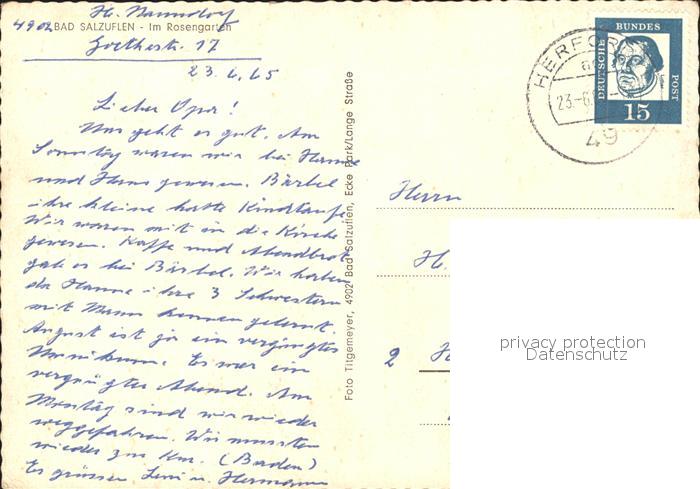 H. Nanndorf
4902 BAD SALZUFLEN - Im Rosengarten
Goethestr. 17
23.6.65
Lieber Opa!
Uns geht es gut. Am
Sonntag waren wir bei Hanne
und Hans gewesen. Bärbel
ihre kleine hatte Kindtaufe.
Wir waren mit in die Kirche
gewesen. Kaffe und Abendbrot
gab es bei Bärbel. Wir haben
da Hanne ihre 3 Schwestern
mit Mann kennen gelernt.
August ist ja ein vergnügtes
Es war ein
vergnügter Abend. Am
Montag sind wir wieder
weggefahren. Wir mussten
wieder zur (Baden)
Es grüssen Leni u. Hermann
Foto Tilgemeyer, 4902 Bad Salzuflen, Ecke Park/Lange Straße
DEUTSCHE BUNDES POST
15
HERFORD
23.-6.
49
Herrn
H.
2 H
privacy protection
Datenschutz